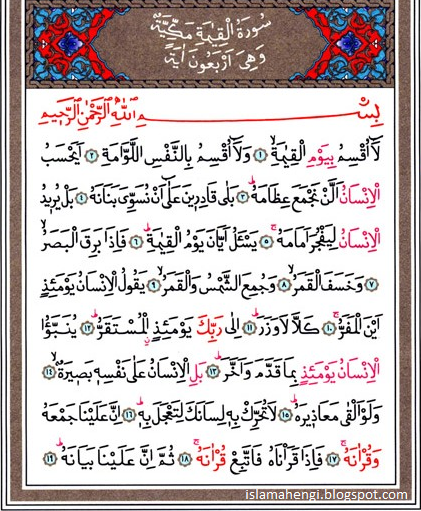 سُورَةُ الْقِيٰمَةِ مَكِّيَّةٌ
وَهِىَ اَرْبَعُونَ اٰيَةً
بِسْــــمِ اللّٰهِ الرَّحْمٰنِ الرَّحِيمِ
لَٓا اُقْسِمُ بِيَوْمِ الْقِيٰمَةِۙ ﴿١﴾ وَلَٓا اُقْسِمُ بِالنَّفْسِ اللَّوَّامَةِ ﴿٢﴾ اَيَحْسَبُ
الْاِنْسَانُ اَلَّنْ نَجْمَعَ عِظَامَهُۜ ﴿٣﴾ بَلٰى قَادِرٖينَ عَلٰٓى اَنْ نُسَوِّىَ بَنَانَهُ ﴿٤﴾ بَلْ يُرٖيدُ
الْاِنْسَانُ لِيَفْجُرَ اَمَامَهُۚ ﴿٥﴾ يَسْـَٔلُ اَيَّانَ يَوْمُ الْقِيٰمَةِۜ ﴿٦﴾ فَاِذَا بَرِقَ الْبَصَرُۙ
﴿٧﴾ وَخَسَفَ الْقَمَرُۙ ﴿٨﴾ وَجُمِعَ الشَّمْسُ وَالْقَمَرُۙ ﴿٩﴾ يَقُولُ الْاِنْسَانُ يَوْمَئِذٍ
اَيْنَ الْمَفَرُّۚ ﴿١٠﴾ كَلَّا لَا وَزَرَۜ ﴿١١﴾ اِلٰى رَبِّكَ يَوْمَئِذٍ الْمُسْتَقَرُّۜ ﴿١٢﴾ يُنَبَّؤُا
الْاِنْسَانُ يَوْمَئِذٍ بِمَا قَدَّمَ وَاَخَّرَۜ ﴿١٣﴾ بَلِ الْاِنْسَانُ عَلٰى نَفْسِهٖ بَصٖيرَةٌۙ ﴿١٤﴾
وَلَوْ اَلْقٰى مَعَاذٖيرَهُۜ ﴿١٥﴾ لَا تُحَرِّكْ بِهٖ لِسَانَكَ لِتَعْجَلَ بِهٖۜ ﴿١٦﴾ اِنَّ عَلَيْنَا جَمْعَهُ
وَقُرْاٰنَهُۚ ﴿١٧﴾ فَاِذَا قَرَأْنَاهُ فَاتَّبِعْ قُرْاٰنَهُۚ ﴿١٨﴾ ثُمَّ اِنَّ عَلَيْنَا بَيَانَهُۜ ﴿١٩﴾
islamahengi.blogspot.com